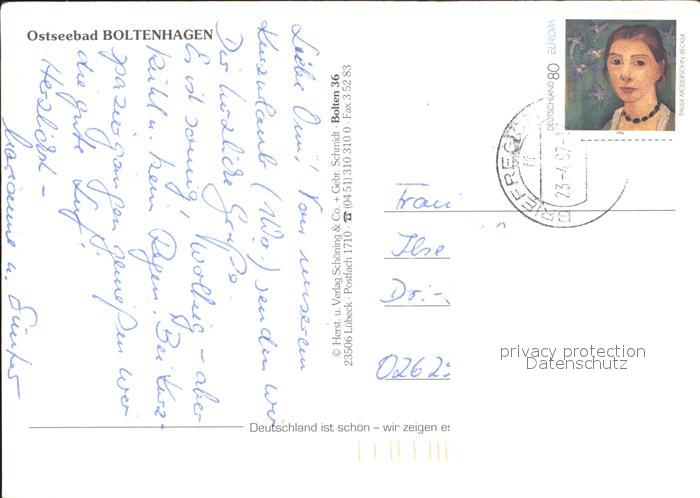 Ostseebad BOLTENHAGEN
Liebe Omi! Von unserem
Kurzurlaub (1 Wo.) senden wir
Dir herzliche Grüße.
Es ist sonnig, wolkig – aber
kühl u. kein Regen. Bei kurz-
spaziergängen genießen wir
die gute Luft.
Herzlichst –
Marianne u. Günter
© Herst. u. Verlag Schöning & Co. + Gebr. Schmidt · Bolten 36
23506 Lübeck · Postfach 1710 · ☎ (04 51) 310 310 0 · Fax 3 52 83
Deutschland ist schön – wir zeigen es
DEUTSCHLAND 80 EUROPA
PAULA MODERSOHN-BECKER
BRIEFREGION
11
23-4.97-1
Frau
Ilse
Dr.-
02625
privacy protection
Datenschutz